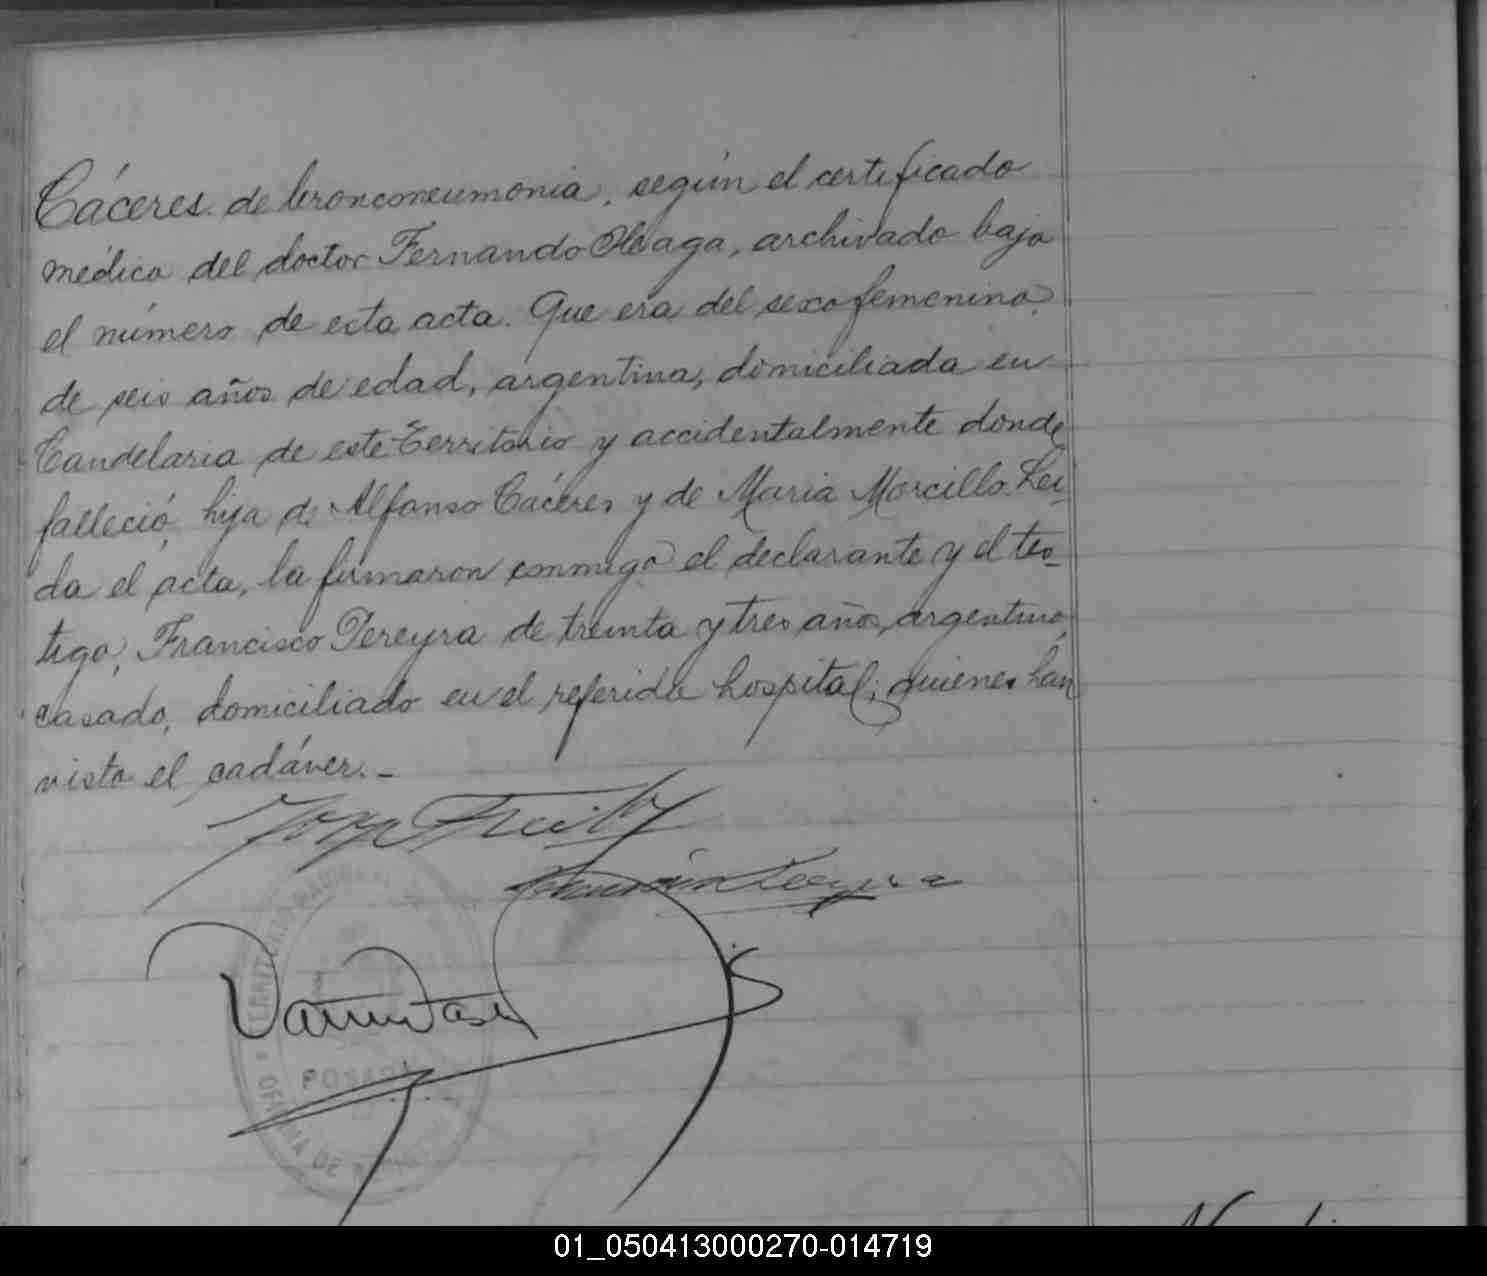 Cáceres de bronconeumonia, según el certificado
médico del doctor Fernando Eleaga, archivado bajo
el número de esta acta. Que era del sexo femenino,
de seis años de edad, argentina, domiciliada en
Candelaria de este Territorio y accidentalmente donde
falleció, hija de Alfonso Cáceres y de Maria Morcillo. Leí-
da el acta, la firmaron conmigo el declarante y el tes-
tigo, Francisco Pereyra de treinta y tres años, argentino,
casado, domiciliado en el referido hospital; quienes han
visto el cadáver.-
TERRITORIO NACIONAL DE
POSADAS
OFICINA DE
01_050413000270-014719